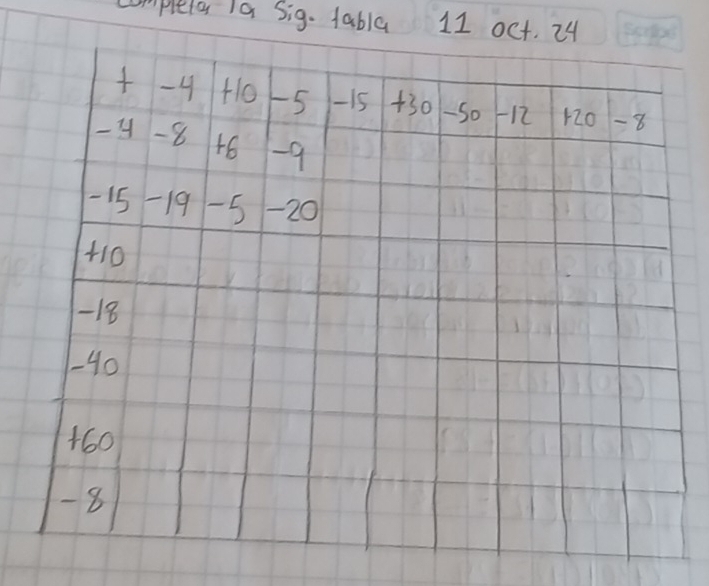 Completa la Sig. tabla 11 oct. 24
+ -4 +10 -5 -15 +30 -50 -12 +20 -8
-4 -8 +6 -9
-15 -19 -5 -20
+10
-18
-40
+60
-8